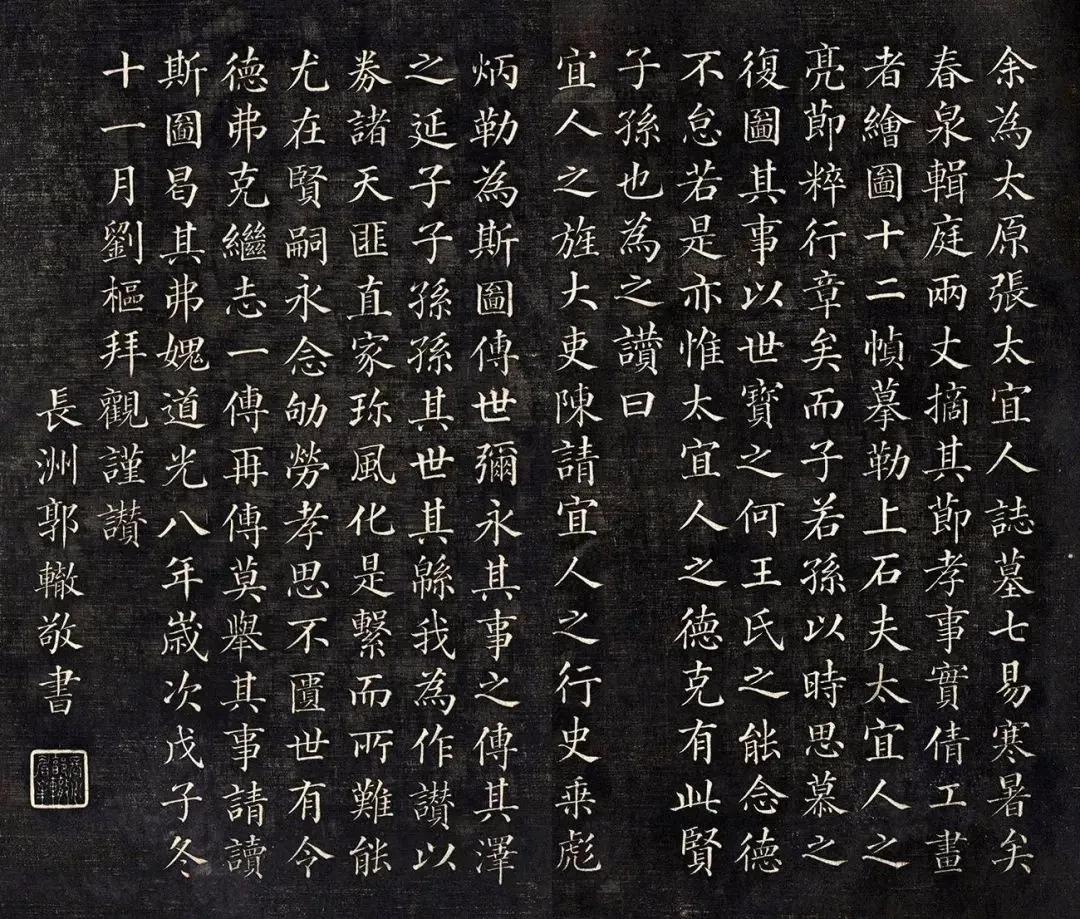 余為太原張太宜人誌墓七易寒暑矣
春泉輯庭兩丈摘其節孝事實倩工畫
者繪圖十二幀摹勒上石夫太宜人之
亮節粹行章矣而子若孫以時思慕之
復圖其事以世寶之何王氏之能念德
不怠若是亦惟太宜人之德克有此賢
子孫也為之讚曰
宜人之旌大吏陳請宜人之行史乘彪
炳勒為斯圖傳世彌永其事之傳其澤
之延子子孫孫其世其緜我為作讃以
券諸天匪直家珎風化是繫而所難能
尤在賢嗣永念劬勞孝思不匱世有令
德弗克繼志一傳再傳莫舉其事請讀
斯圖曷其弗媿道光八年歲次戊子冬
十一月劉樞拜觀謹讃
長洲郭轍敬書